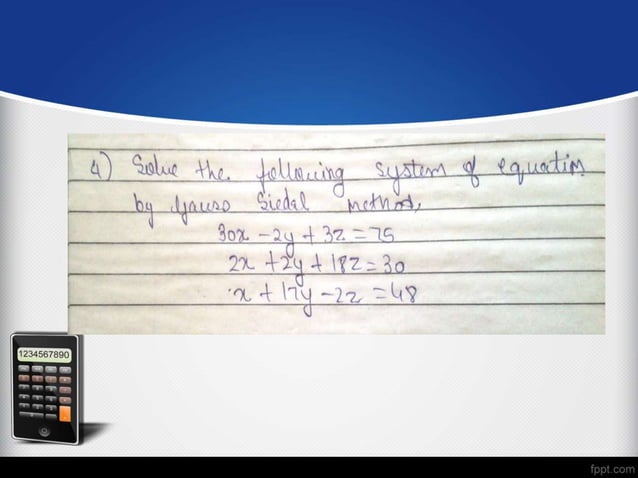 4) Solve the following system of equation
by Gauss Siedal method,
30x - 2y + 3z = 75
2x + 2y + 18z = 30
x + 17y - 2z = 48
1234567890
fppt.com